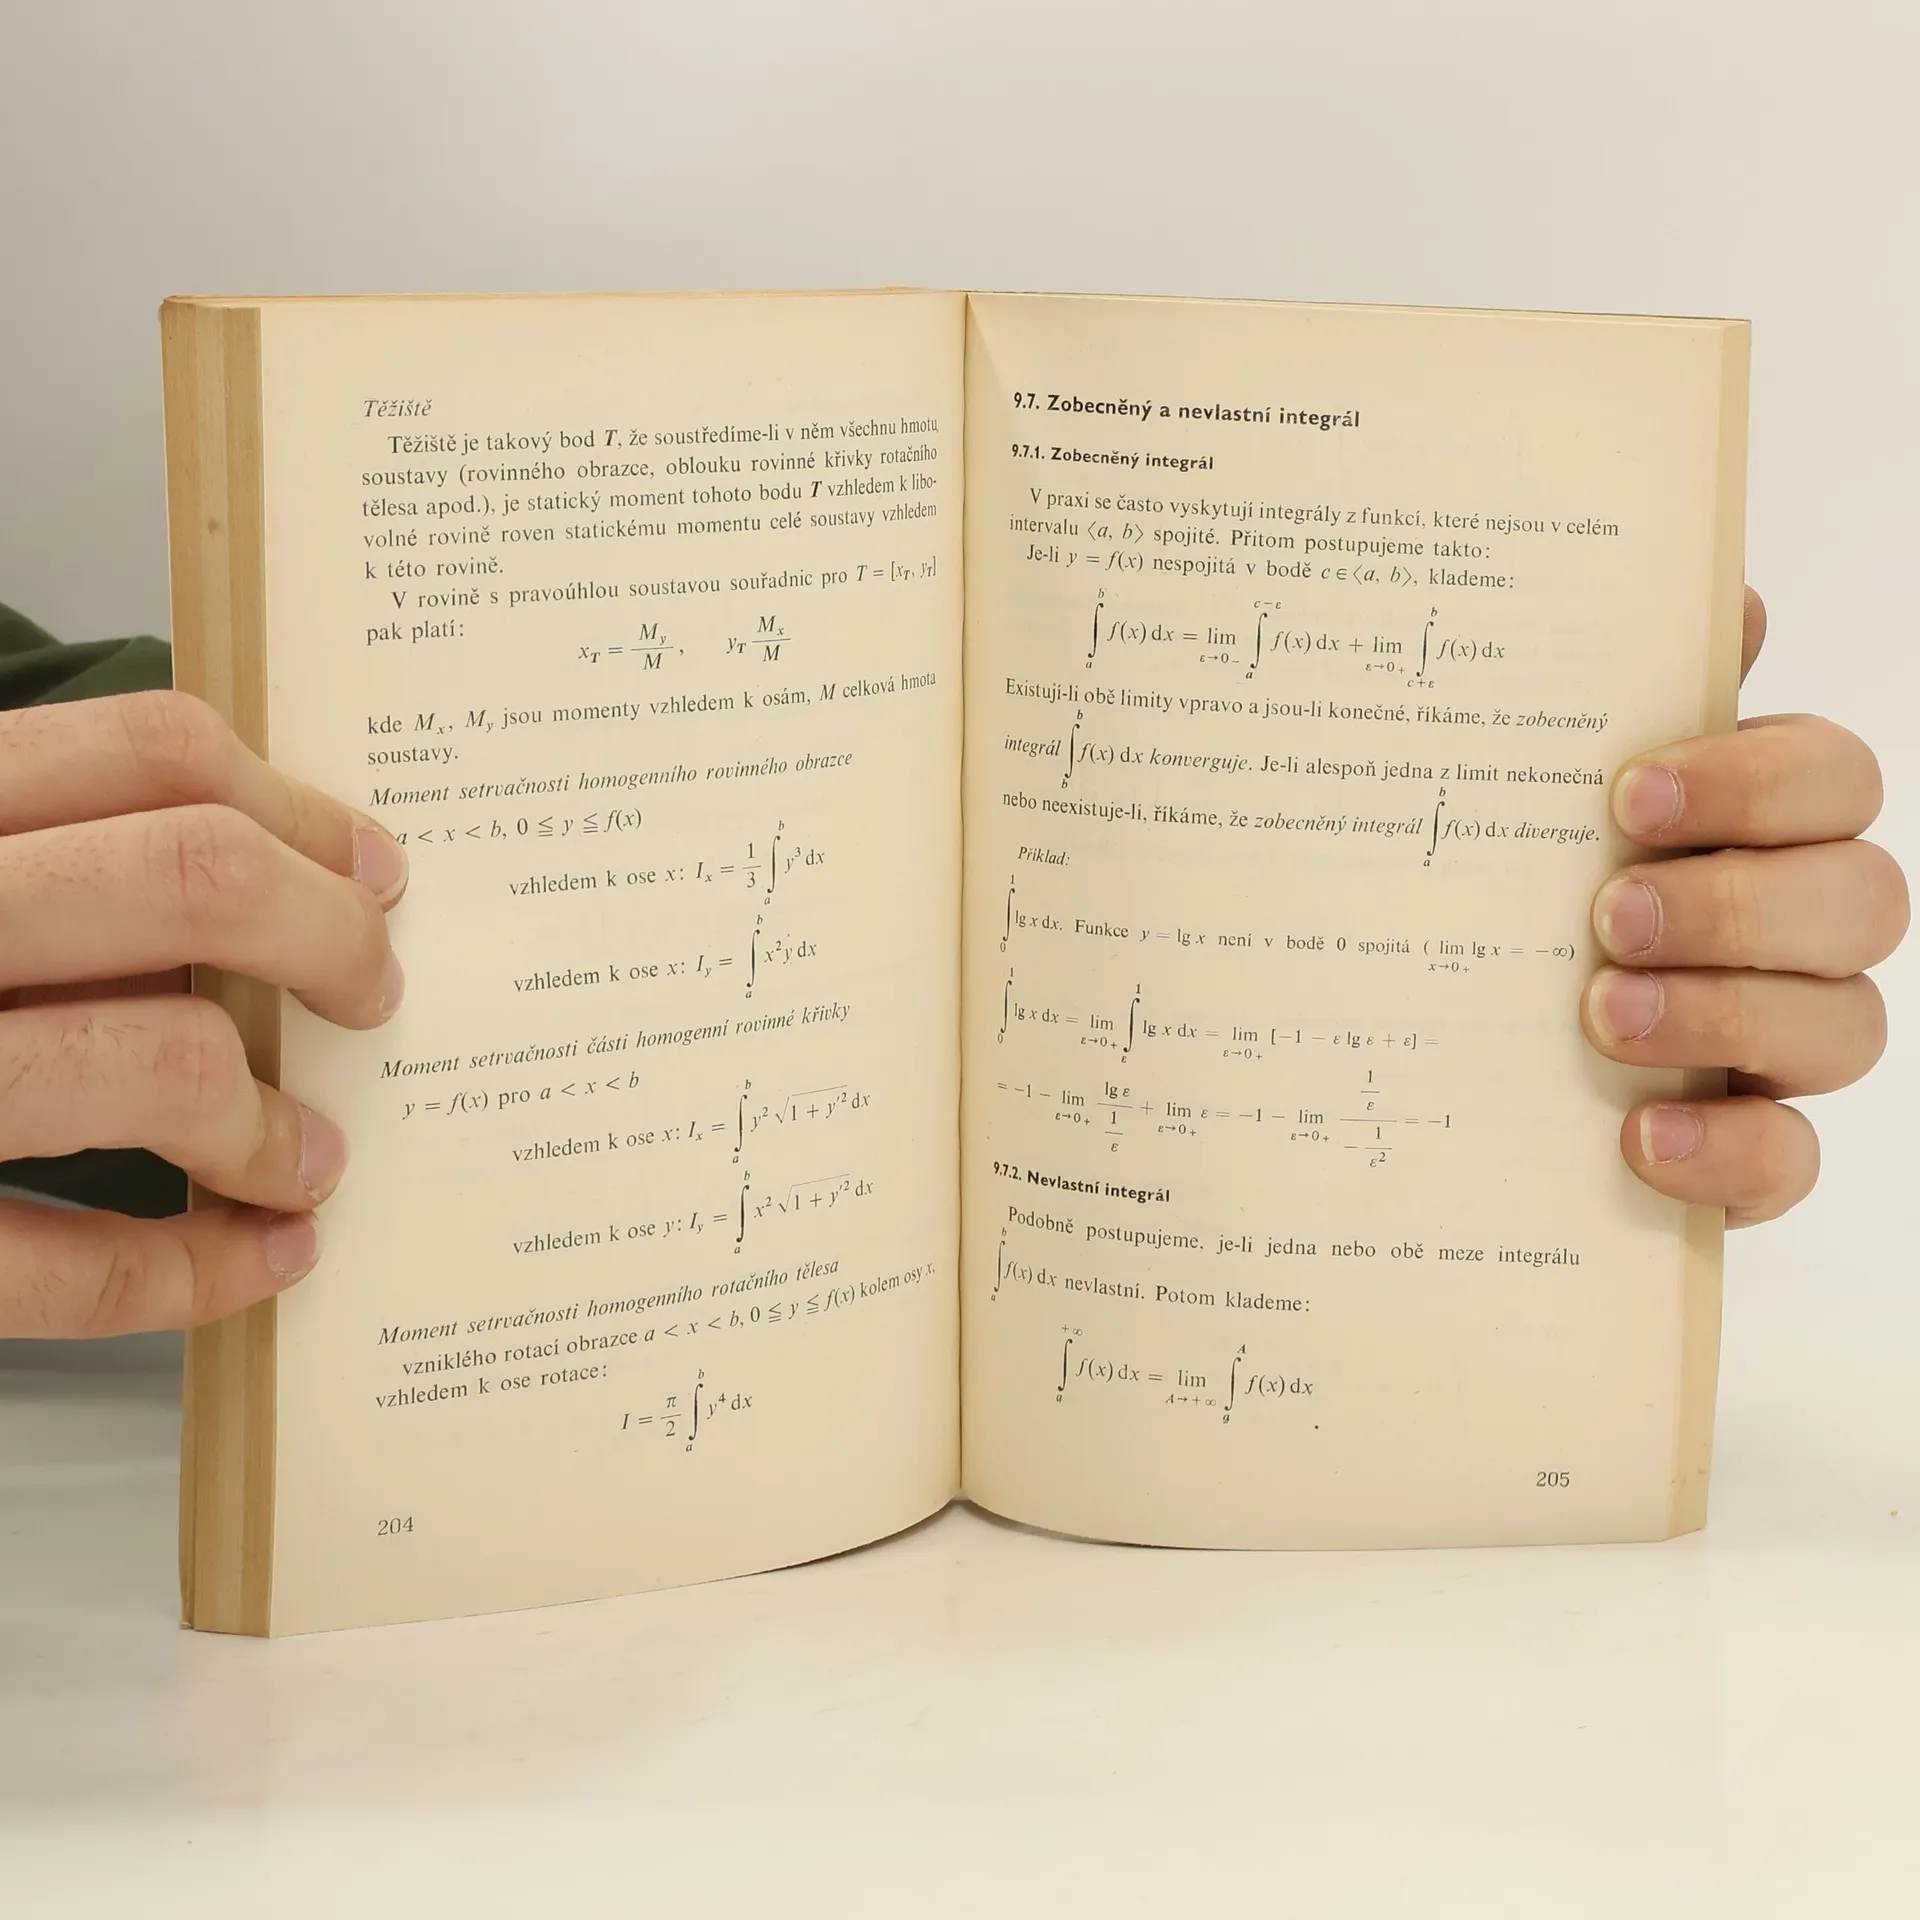 Těžiště
Těžiště je takový bod T, že soustředíme-li v něm všechnu hmotu
soustavy (rovinného obrazce, oblouku rovinné křivky rotačního
tělesa apod.), je statický moment tohoto bodu T vzhledem k libo-
volné rovině roven statickému momentu celé soustavy vzhledem
k této rovině.
V rovině s pravoúhlou soustavou souřadnic pro T = [x_T, y_T]
pak platí:
x_T = M_y / M , y_T M_x / M
kde M_x, M_y jsou momenty vzhledem k osám, M celková hmota
soustavy.
Moment setrvačnosti homogenního rovinného obrazce
a < x < b, 0 ≦ y ≦ f(x)
vzhledem k ose x: I_x = 1/3 ∫_a^b y³ dx
vzhledem k ose x: I_y = ∫_a^b x² y dx
Moment setrvačnosti části homogenní rovinné křivky
y = f(x) pro a < x < b
vzhledem k ose x: I_x = ∫_a^b y² √(1 + y′²) dx
vzhledem k ose y: I_y = ∫_a^b x² √(1 + y′²) dx
Moment setrvačnosti homogenního rotačního tělesa
vzniklého rotací obrazce a < x < b, 0 ≦ y ≦ f(x) kolem osy x,
vzhledem k ose rotace:
I = π/2 ∫_a^b y⁴ dx
204
9.7. Zobecněný a nevlastní integrál
9.7.1. Zobecněný integrál
V praxi se často vyskytují integrály z funkcí, které nejsou v celém
intervalu ⟨a, b⟩ spojité. Přitom postupujeme takto:
Je-li y = f(x) nespojitá v bodě c ∈ ⟨a, b⟩, klademe:
∫_a^b f(x) dx = lim_{ε→0−} ∫_a^{c−ε} f(x) dx + lim_{ε→0+} ∫_{c+ε}^b f(x) dx
Existují-li obě limity vpravo a jsou-li konečné, říkáme, že zobecněný
integrál ∫_b^b f(x) dx konverguje. Je-li alespoň jedna z limit nekonečná
nebo neexistuje-li, říkáme, že zobecněný integrál ∫_a^b f(x) dx diverguje.
Příklad:
∫_0^1 lg x dx. Funkce y = lg x není v bodě 0 spojitá ( lim_{x→0+} lg x = −∞)
∫_0^1 lg x dx = lim_{ε→0+} ∫_ε^1 lg x dx = lim_{ε→0+} [−1 − ε lg ε + ε] =
= −1 − lim_{ε→0+} lg ε / (1/ε) + lim_{ε→0+} ε = −1 − lim_{ε→0+} (1/ε) / (− 1/ε²) = −1
9.7.2. Nevlastní integrál
Podobně postupujeme, je-li jedna nebo obě meze integrálu
∫_a^b f(x) dx nevlastní. Potom klademe:
∫_a^{+∞} f(x) dx = lim_{A→+∞} ∫_a^A f(x) dx
205